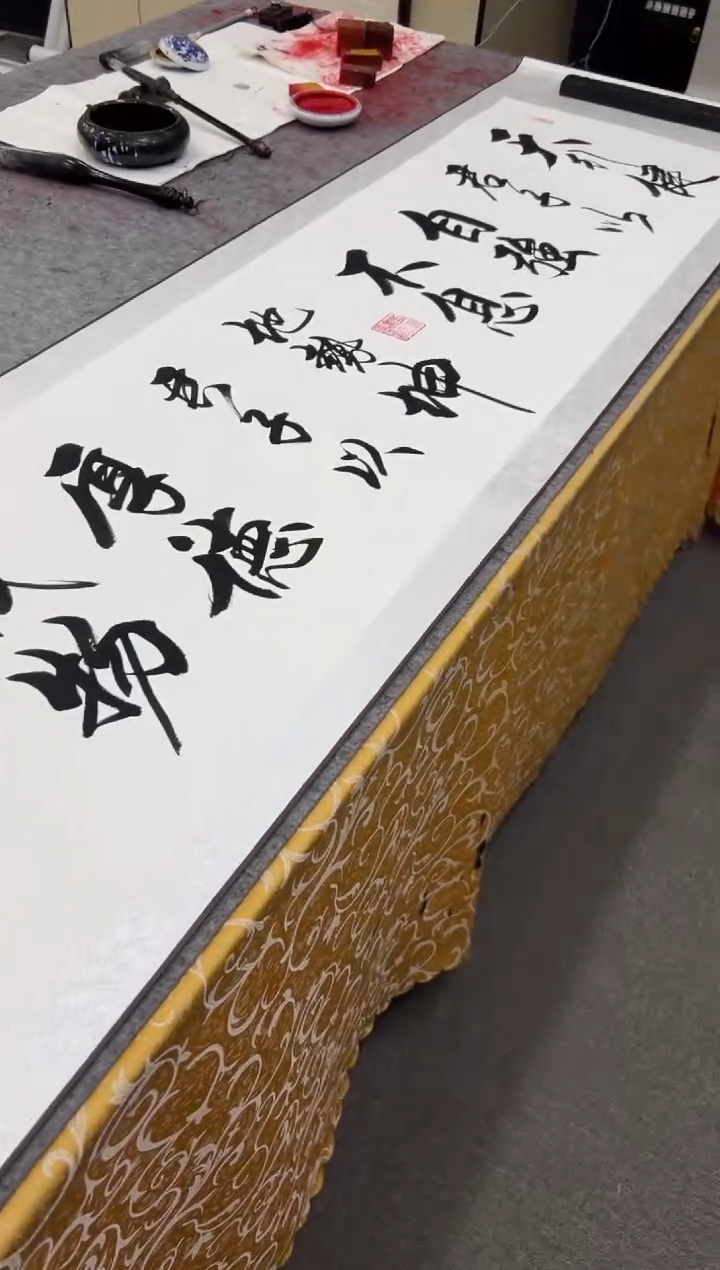 天行健
君子以
自強
不息
地勢坤
君子以
厚德
物